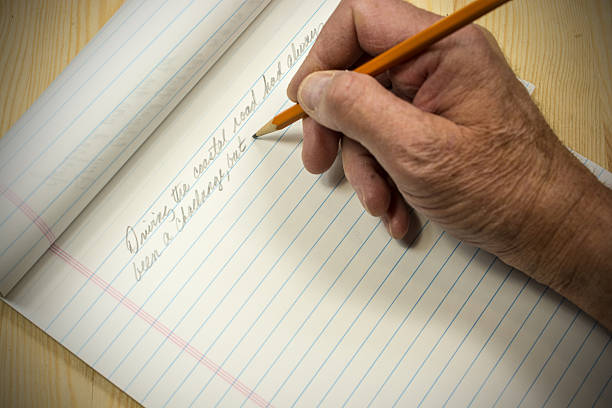 Driving the coastal road had always
been a challenge, but